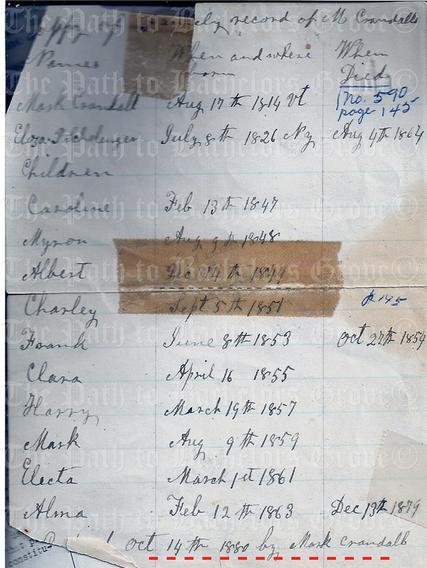 ely record of M Crandalls
Names When and where When
born Died
No. 590
page 145
Mark Crandall Aug 17th 1814 Vt
July 8th 1826 Ny Aug 4th 1864
Children
Caroline Feb 13th 1847
Myron Aug 9th 1848
Albert Dec 24th 1849
Charley Sept 5th 1851 p 145
Frank June 8th 1853 Oct 27th 1854
Clara April 16 1855
Harry March 19th 1857
Mark Aug 9th 1859
Electa March 1st 1861
Alma Feb 12th 1863 Dec 13th 1879
Oct 14th 1880 by Mark Crandall
The Path to Bachelors Grove©